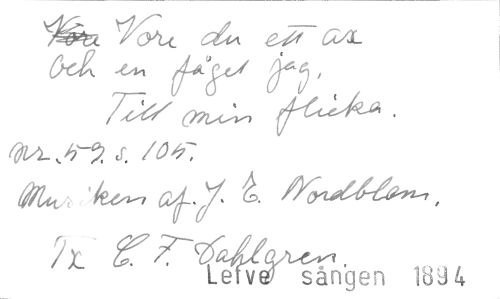 Vore Vore du ett ax
och en fågel jag,
Till min flicka.
nr. 59. s. 105.
Musiken af. J. E. Nordblom.
Tx C. F. Dahlgren.
Lefve sången 1894